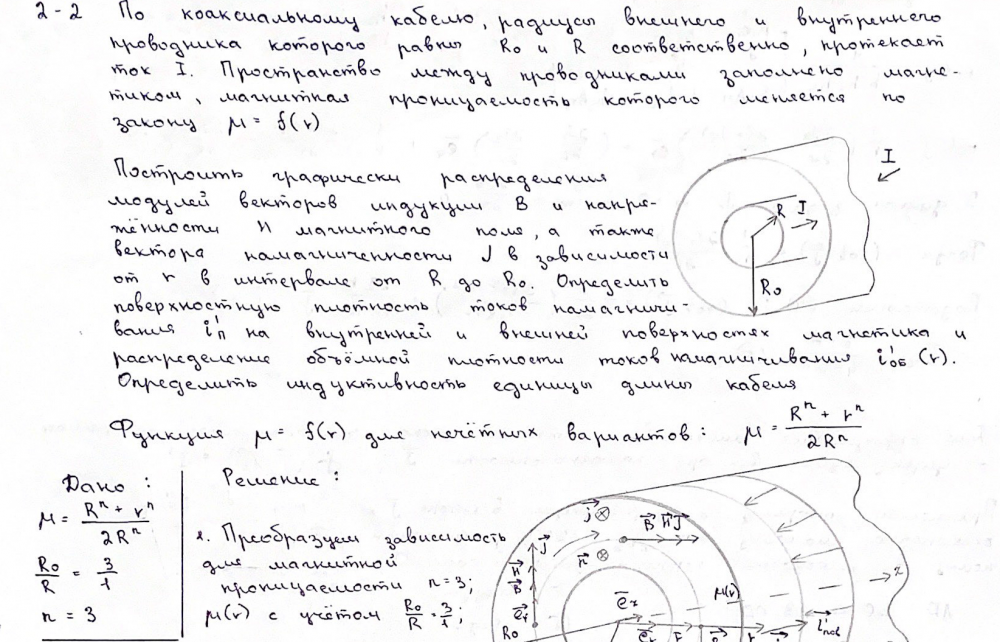 2-2 По коаксиальному кабелю, радиусы внешнего и внутреннего
проводника которого равны R₀ и R соответственно, протекает
ток I. Пространство между проводниками заполнено магне-
тиком, магнитная проницаемость которого меняется по
закону μ = f(r)
Построить графически распределения
модулей векторов индукции B и напря-
жённости H магнитного поля, а также
вектора намагниченности J в зависимости
от r в интервале от R до R₀. Определить
поверхностную плотность токов намагничи-
вания i'п на внутренней и внешней поверхностях магнетика и
распределение объёмной плотности токов намагничивания i'об (r).
Определить индуктивность единицы длины кабеля
I
R I
R₀
Функция μ = f(r) для нечётных вариантов: μ = (Rⁿ + rⁿ) / 2Rⁿ
Дано:
μ = (Rⁿ + rⁿ) / 2Rⁿ
R₀/R = 3/1
n = 3
Решение:
1. Преобразуем зависимость
для магнитной
проницаемости n=3;
μ(r) с учётом R₀/R = 3/1;
j
B H J
n
J
H
B
R₀
μ(r)
z